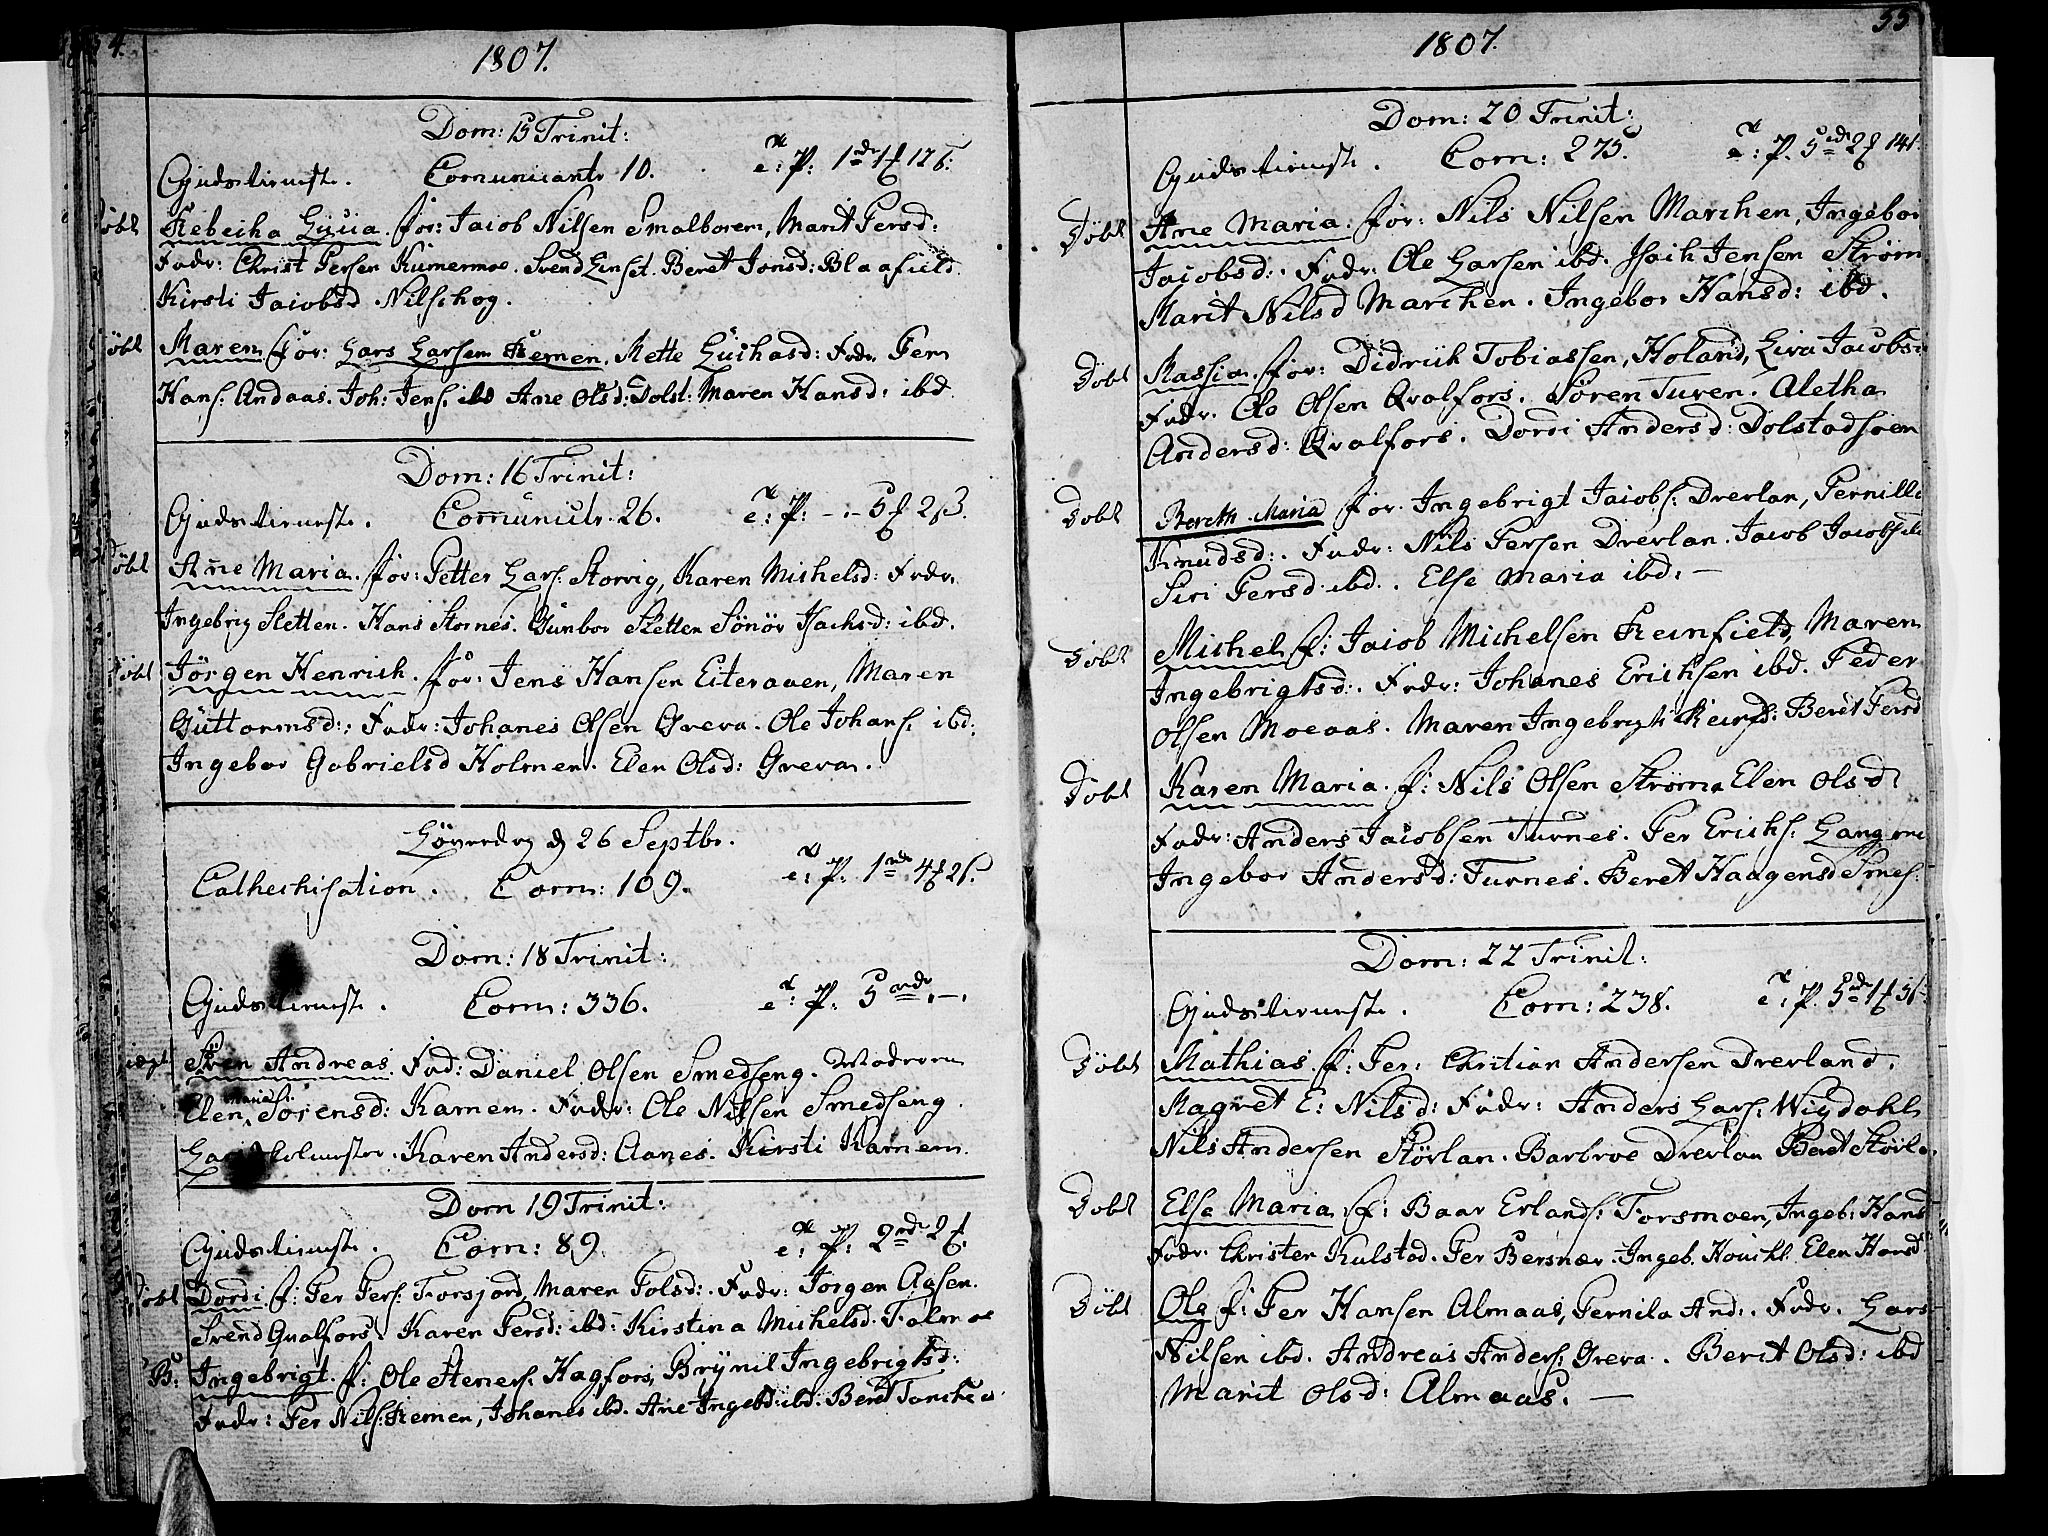 54.
1807.
Dom: 15 Trinit:
Gudstieneste. Comunicants 10. e: p: 1 1 12 ß:
Döbt Rebecka Lucia. for: Jacob Nilsen Smalboren, Marit Persd:
Fadr: Christ Persen Kumermoe. Svend Einset. Beret Jonsd: Blaafield.
Kirsti Jacobsd. Nilschog.
Döbt Maren for: Lars Larsen Remen. Mette Luchasd: Fadr. Per
Hans. Andaas. Joh: Jens. ibd Ane Olsd: Dolst: Maren Hansd: ibd.
Dom: 16 Trinit:
Gudstieneste. Comunicts. 26. e: p: -:- 5 2 ß.
Döbt Ane Maria. for: Petter Lars. Storvig, Karen Michelsd: Fadr.
Ingebrig Sletten. Hans Stornes. Gunbor Sletten Sönöv Isachsd: ibd.
Döbt Jörgen Henrich. for: Jens Hansen Eiteraaen, Maren
Guttormsd:. Fadr: Johanes Olsen Greva. Ole Johans. ibd:
Ingebor Gabrielsd Holmen. Elen Olsd: Greva.
Löverdag d 26 Septbr.
Cathechisation. Com: 109. e: p. 1 4 2 ß.
Dom: 18 Trinit:
Gudstieneste. Com: 336. e: p: 5
Sven Andreas. Fad: Daniel Olsen Smedseng. Moderen
Elen Maria Sörensd: Kamen. Fadr: Ole Nilsen Smedseng.
Karen Andersd: Aanes. Kirsti Kamern.
Dom 19 Trinit:
Gudstieneste. Com: 89. e: p: 2 2
Döbt Dordi f: Per Pers. Forsjord, Maren Polsd:. Fadr: Jorgen Aasen.
Svend Qvalfors. Karen Persd: ibd: Kirstina Michelsd. Talmoe
B: Ingebrigt. f: Ole Steners. Hagfors, Brynil Ingebrigtsd:
Fadr: Per Nils. Remen, Johanes ibd. Ane Ingebd: ibd. Beret
55
1807.
Dom: 20 Trinit:
Gudstieneste. Com: 275. e: p. 5 2 14
Döbt Ane Maria. for: Nils Nilsen Marchen, Ingebor
Jacobsd:. Fadr. Ole Larsen ibd. Isach Jensen Strøm
Marit Nilsd Marchen. Ingebor Hansd: ibd.
Döbt Massia. for: Didrich Tobiassen, Holand, Liva Jacobsd
Fadr. Ole Olsen Qvalfors. Sören Turen. Aletha
Andersd: Qvalfors. Dordi Andersd: Dolstadsoen
Döbt Bereth Maria for. Ingebrigt Jacobs. Drevlan, Pernilla
Knudsd:. Fadr: Nils Persen Drevlan. Jacob Jacobsen
Siri Persd ibd. Else Maria ibd: -
Döbt Michel f: Jacob Michelsen Reinfield, Maren
Ingebrigtsd:. Fadr: Johanes Erichsen ibd. Peder
Olsen Moeaas. Maren Ingebrigt Beret Persd
Döbt Karen Maria. f: Nils Olsen Strøm, Elen Olsd:
Fadr: Anders Jacobsen Turnes. Per Erichs.
Ingebor Andersd: Turnes. Beret Haagensd
Dom: 22 Trinit:
Gudstieneste. Com: 238. e: p. 5 1
Döbt Mathias f: Per: Christian Andersen Drevland.
Magret E: Nilsd: Fadr: Anders Lars. Wigdahl
Nils Andersen Störlan. Barbroe Drevlan Beret Störl.
Döbt Else Maria f: Baar Erlands. Forsmoen, Ingeb: Hans
Fadr. Christen Kulstad. Per Bersnær. Ingeb. Elen Hansd
Döbt Ole f: Per Hansen Almaas, Pernila And:. Fadr. Lars
Nilsen ibd. Andreas Anders. Greva. Berit Olsd: ibd
Marit Olsd: Almaas. -